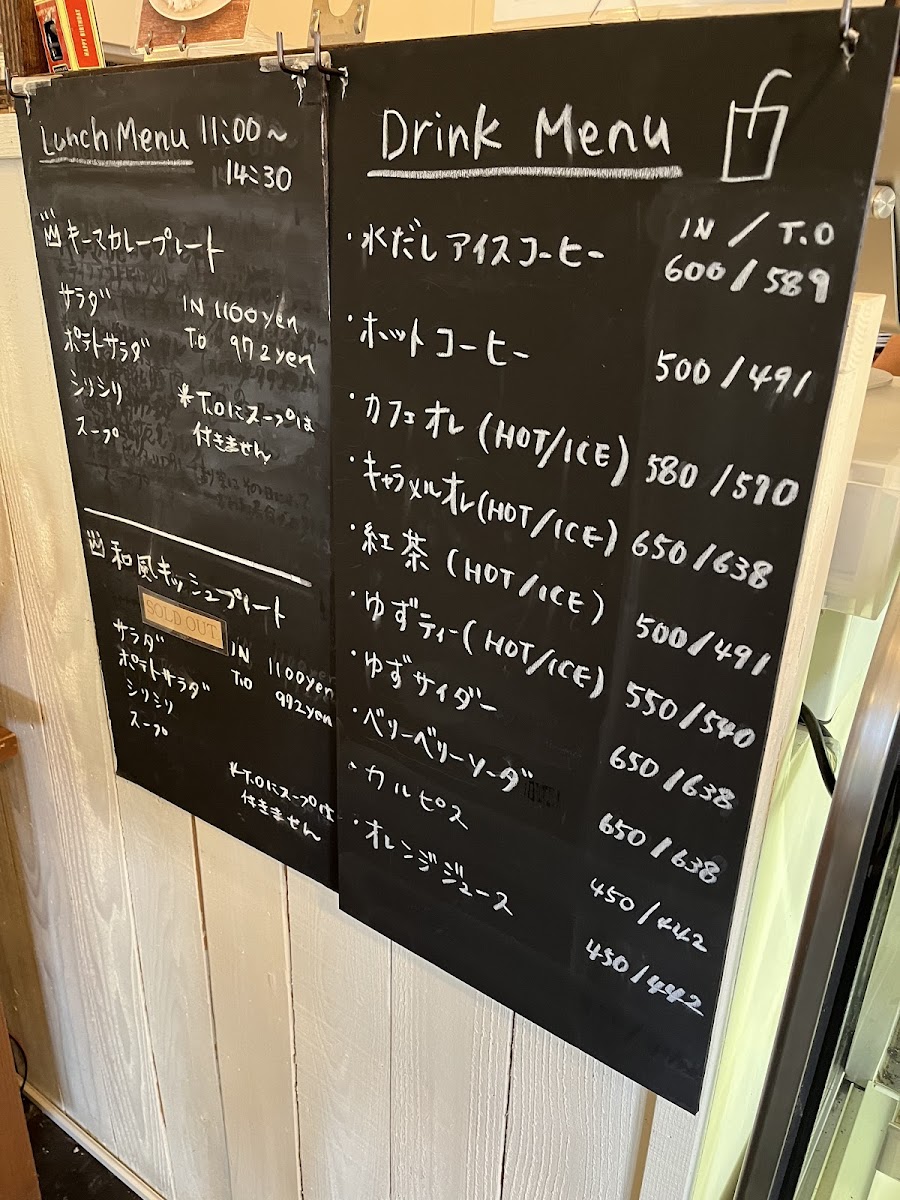 HAPPY BIRTHDAY
Lunch Menu 11:00〜
14:30
キーマカレープレート
サラダ
ポテトサラダ
シリシリ
スープ
IN 1100yen
T.O 972yen
*T.Oにスープは
付きません
和風キッシュプレート
SOLD OUT
サラダ
ポテトサラダ
シリシリ
スープ
IN 1100yen
T.O 992yen
*T.Oにスープは
付きません
Drink Menu
IN / T.O
・水だしアイスコーヒー 600/589
・ホットコーヒー 500/491
・カフェオレ(HOT/ICE) 580/570
・キャラメルオレ(HOT/ICE) 650/638
・紅茶(HOT/ICE) 500/491
・ゆずティー(HOT/ICE) 550/540
・ゆずサイダー 650/638
・ベリーベリーソーダ 650/638
・カルピス 450/442
・オレンジジュース 450/442